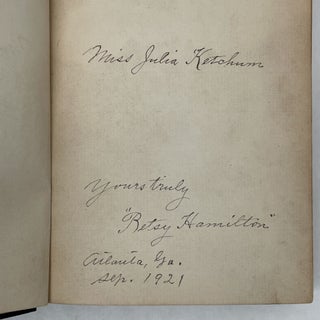 Miss Julia Ketchum
Yours truly
"Betsy Hamilton"
Atlanta, Ga.
Sep. 1921